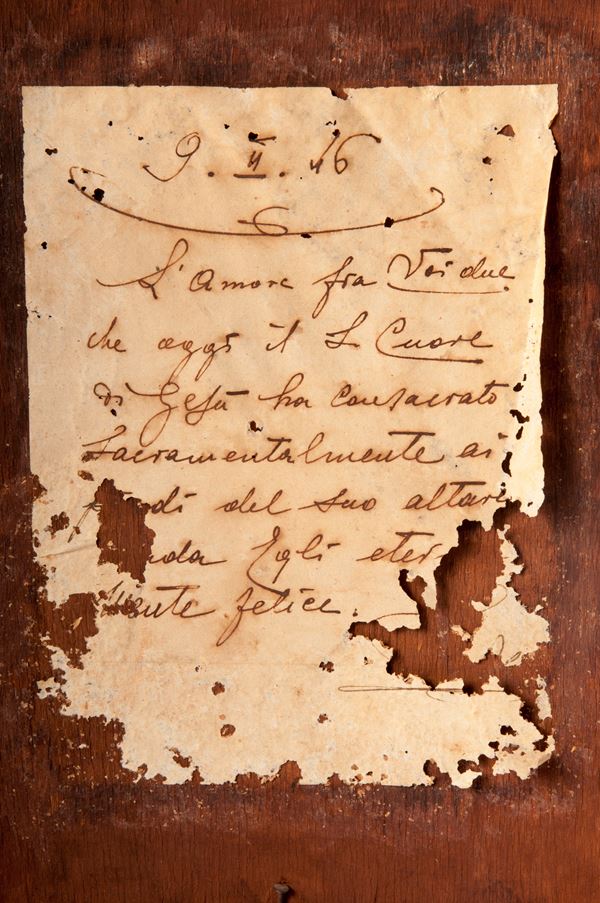 9. II. 46
L'Amore fra Voi due
che oggi il S Cuore
di Gesù ha consacrato
sacramentalmente ai
di del suo altare
Egli
felice.